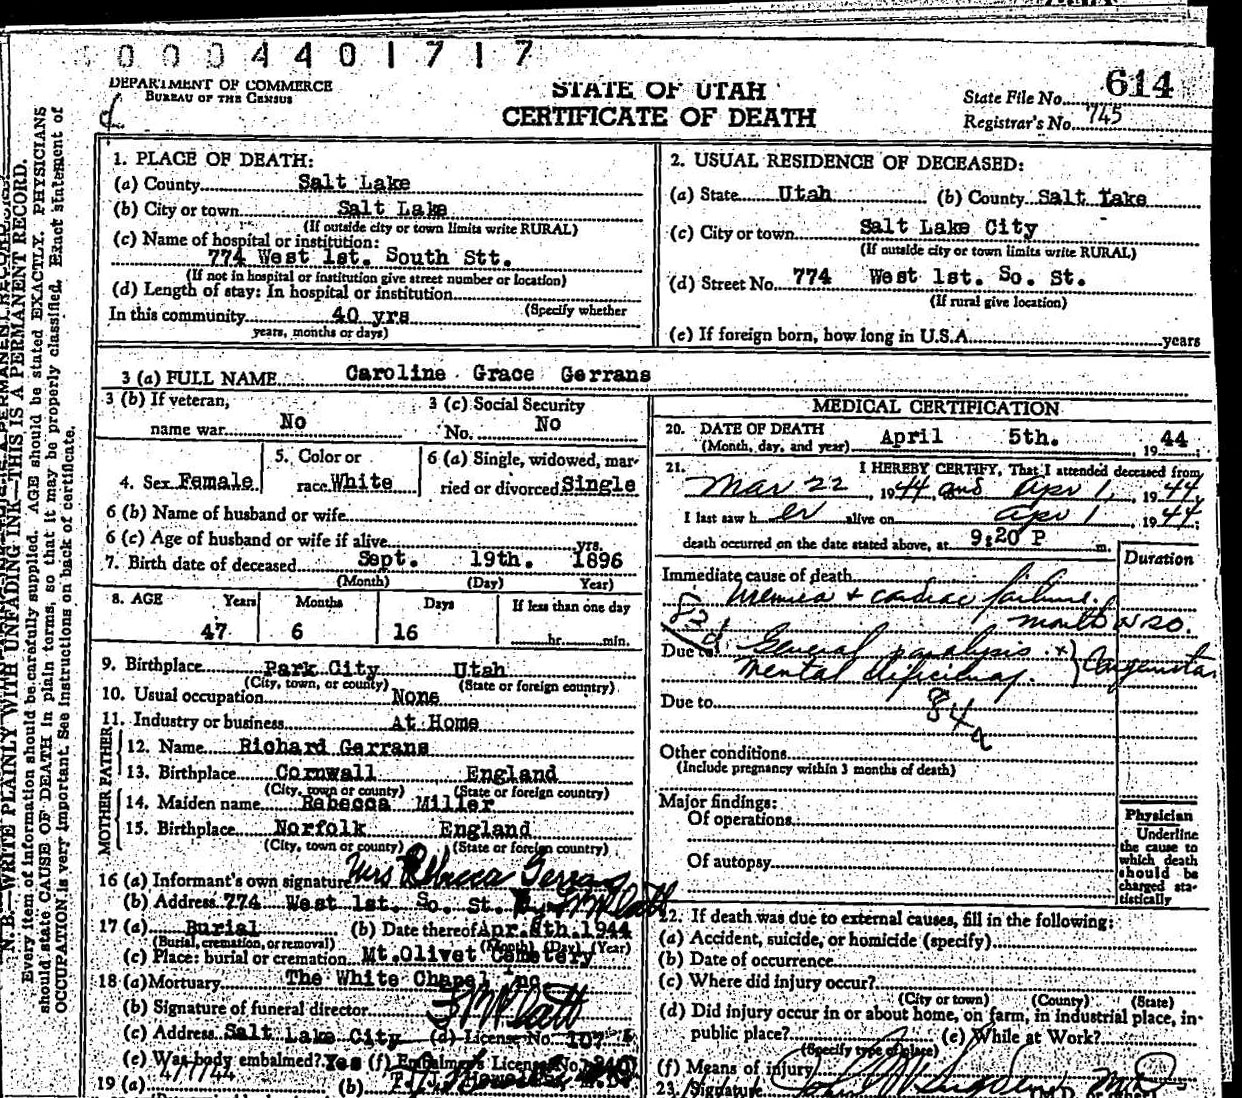 0004401717
DEPARTMENT OF COMMERCE
BUREAU OF THE CENSUS
STATE OF UTAH
CERTIFICATE OF DEATH
State File No. 614
Registrar's No. 745
N. B.—WRITE PLAINLY WITH UNFADING INK—THIS IS A PERMANENT RECORD.
Every item of information should be carefully supplied. AGE should be stated EXACTLY. PHYSICIANS
should state CAUSE OF DEATH in plain terms, so that it may be properly classified. Exact statement of
OCCUPATION is very important. See instructions on back of certificate.
1. PLACE OF DEATH:
(a) County Salt Lake
(b) City or town Salt Lake
(If outside city or town limits write RURAL)
(c) Name of hospital or institution:
774 West 1st. South Stt.
(If not in hospital or institution give street number or location)
(d) Length of stay: In hospital or institution
In this community 40 yrs (Specify whether
years, months or days)
2. USUAL RESIDENCE OF DECEASED:
(a) State Utah (b) County Salt Lake
(c) City or town Salt Lake City
(If outside city or town limits write RURAL)
(d) Street No. 774 West 1st. So. St.
(If rural give location)
(e) If foreign born, how long in U.S.A. years
3 (a) FULL NAME Caroline Grace Gerrans
3 (b) If veteran, 3 (c) Social Security
name war No No. No
4. Sex Female 5. Color or race White 6 (a) Single, widowed, married or divorced Single
6 (b) Name of husband or wife
6 (c) Age of husband or wife if alive yrs.
7. Birth date of deceased Sept. 19th. 1896
(Month) (Day) Year)
8. AGE Years Months Days If less than one day
47 6 16 hr. min.
9. Birthplace Park City Utah
(City, town, or county) (State or foreign country)
10. Usual occupation None
11. Industry or business At Home
FATHER
12. Name Richard Gerrans
13. Birthplace Cornwall England
(City, town or county) (State or foreign country)
MOTHER
14. Maiden name Rebecca Miller
15. Birthplace Norfolk England
(City, town or county) (State or foreign country)
16 (a) Informant's own signature Mrs Rebecca Gerrans
(b) Address 774 West 1st. So. St.
17 (a) Burial (b) Date thereof Apr. 8th. 1944
(Burial, cremation, or removal) (Month) (Day) (Year)
(c) Place: burial or cremation Mt. Olivet Cemetery
18 (a) Mortuary The White Chapel Inc
(b) Signature of funeral director
(c) Address Salt Lake City (d) License No. 107
(e) Was body embalmed? Yes (f) Embalmer's License No.
19 (a) 4/7/44 (b)
MEDICAL CERTIFICATION
20. DATE OF DEATH
(Month, day, and year) April 5th. 1944
21. I HEREBY CERTIFY, That I attended deceased from
Mar 22, 1944, and Apr 1, 1944,
I last saw her alive on Apr 1, 1944;
death occurred on the date stated above, at 9:20 P m.
Duration
Immediate cause of death
Uremia + cardiac failure.
Due to General paralysis +
mental deficiency.
Due to
84a
Other conditions
(Include pregnancy within 3 months of death)
Major findings:
Of operations
Of autopsy
Physician
Underline
the cause to
which death
should be
charged statistically
22. If death was due to external causes, fill in the following:
(a) Accident, suicide, or homicide (specify)
(b) Date of occurrence
(c) Where did injury occur?
(City or town) (County) (State)
(d) Did injury occur in or about home, on farm, in industrial place, in
public place? (e) While at Work?
(Specify type of place)
(f) Means of injury
23. Signature